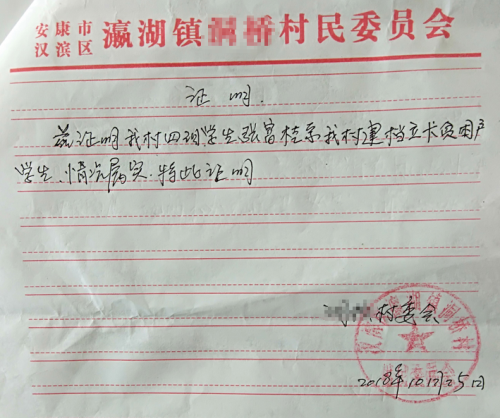 安康市
汉滨区
瀛湖镇村民委员会
证明.
兹证明我村四组学生张富桂系我村建档立卡贫困户
学生.情况属实.特此证明
村委会
2018年10月25日